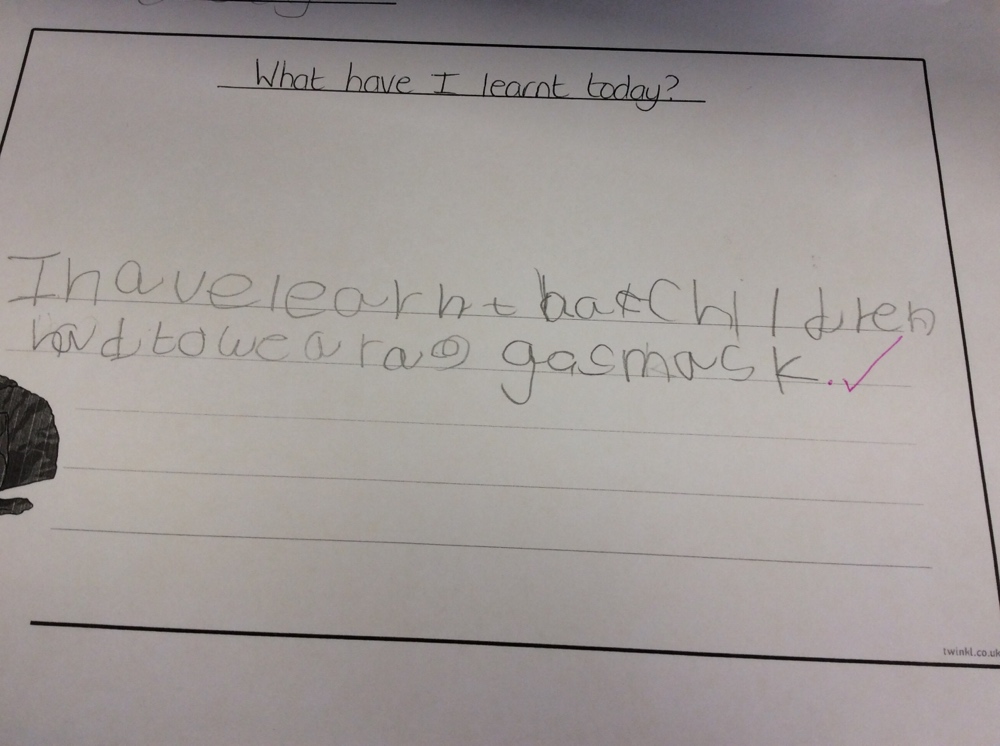 What have I learnt today?
I have learnt hat Children
had to wear a gas mask.
twinkl.co.uk